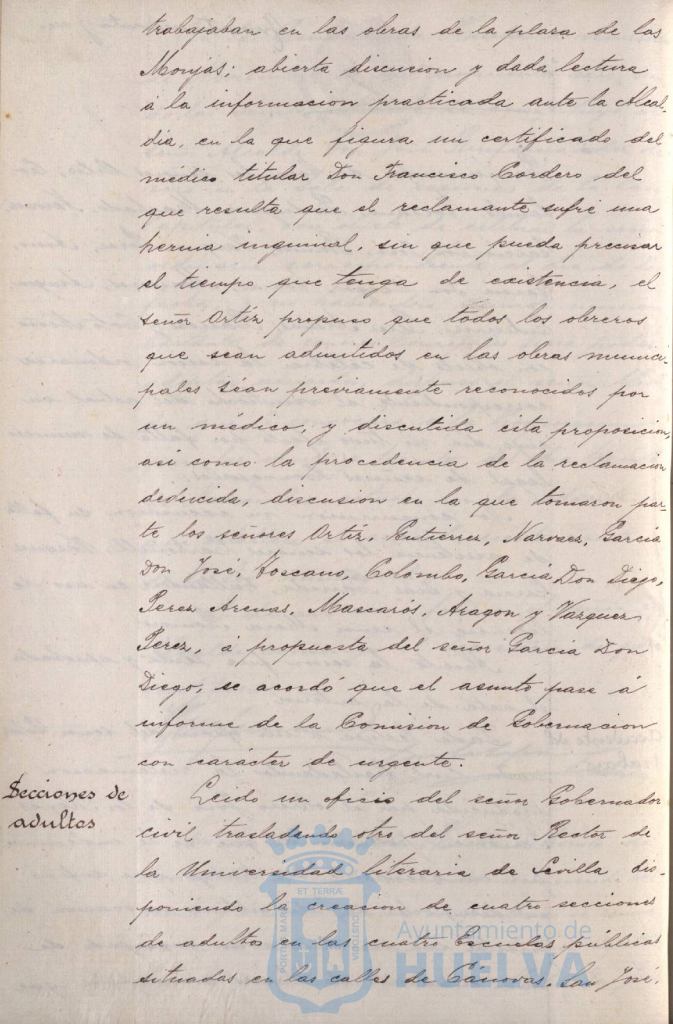 trabajaban en las obras de la plaza de las
Monjas; abierta discusion y dada lectura
á la informacion practicada ante la Alcal-
dia, en la que figura un certificado del
médico titular Don Francisco Cordero del
que resulta que el reclamante sufre una
hernia inguinal, sin que pueda precisar
el tiempo que tenga de existencia, el
señor Ortíz propuso que todos los obreros
que sean admitidos en las obras munici-
pales séan préviamente reconocidos por
un médico, y discutida esta proposicion,
así como la procedencia de la reclamacion
deducida, discusion en la que tomaron par-
te los señores Ortíz, Gutierrez, Narvaez, García
Don José, Toscano, Colombo, García Don Diego,
Perez Arenas, Mascarós, Aragon y Vazquez
Perez, á propuesta del señor García Don
Diego, se acordó que el asunto pase á
informe de la Comision de Gobernacion
con carácter de urgente.
Secciones de
adultos
Leido un oficio del señor Gobernador
civil trasladando otro del señor Rector de
la Universidad literaria de Sevilla dis-
poniendo la creacion de cuatro secciones
de adultos en las cuatro Escuelas públicas
situadas en las calles de Cánovas, San José,
PORTUS MARIS
ET TERRÆ
CUSTODIA
Ayuntamiento de
HUELVA